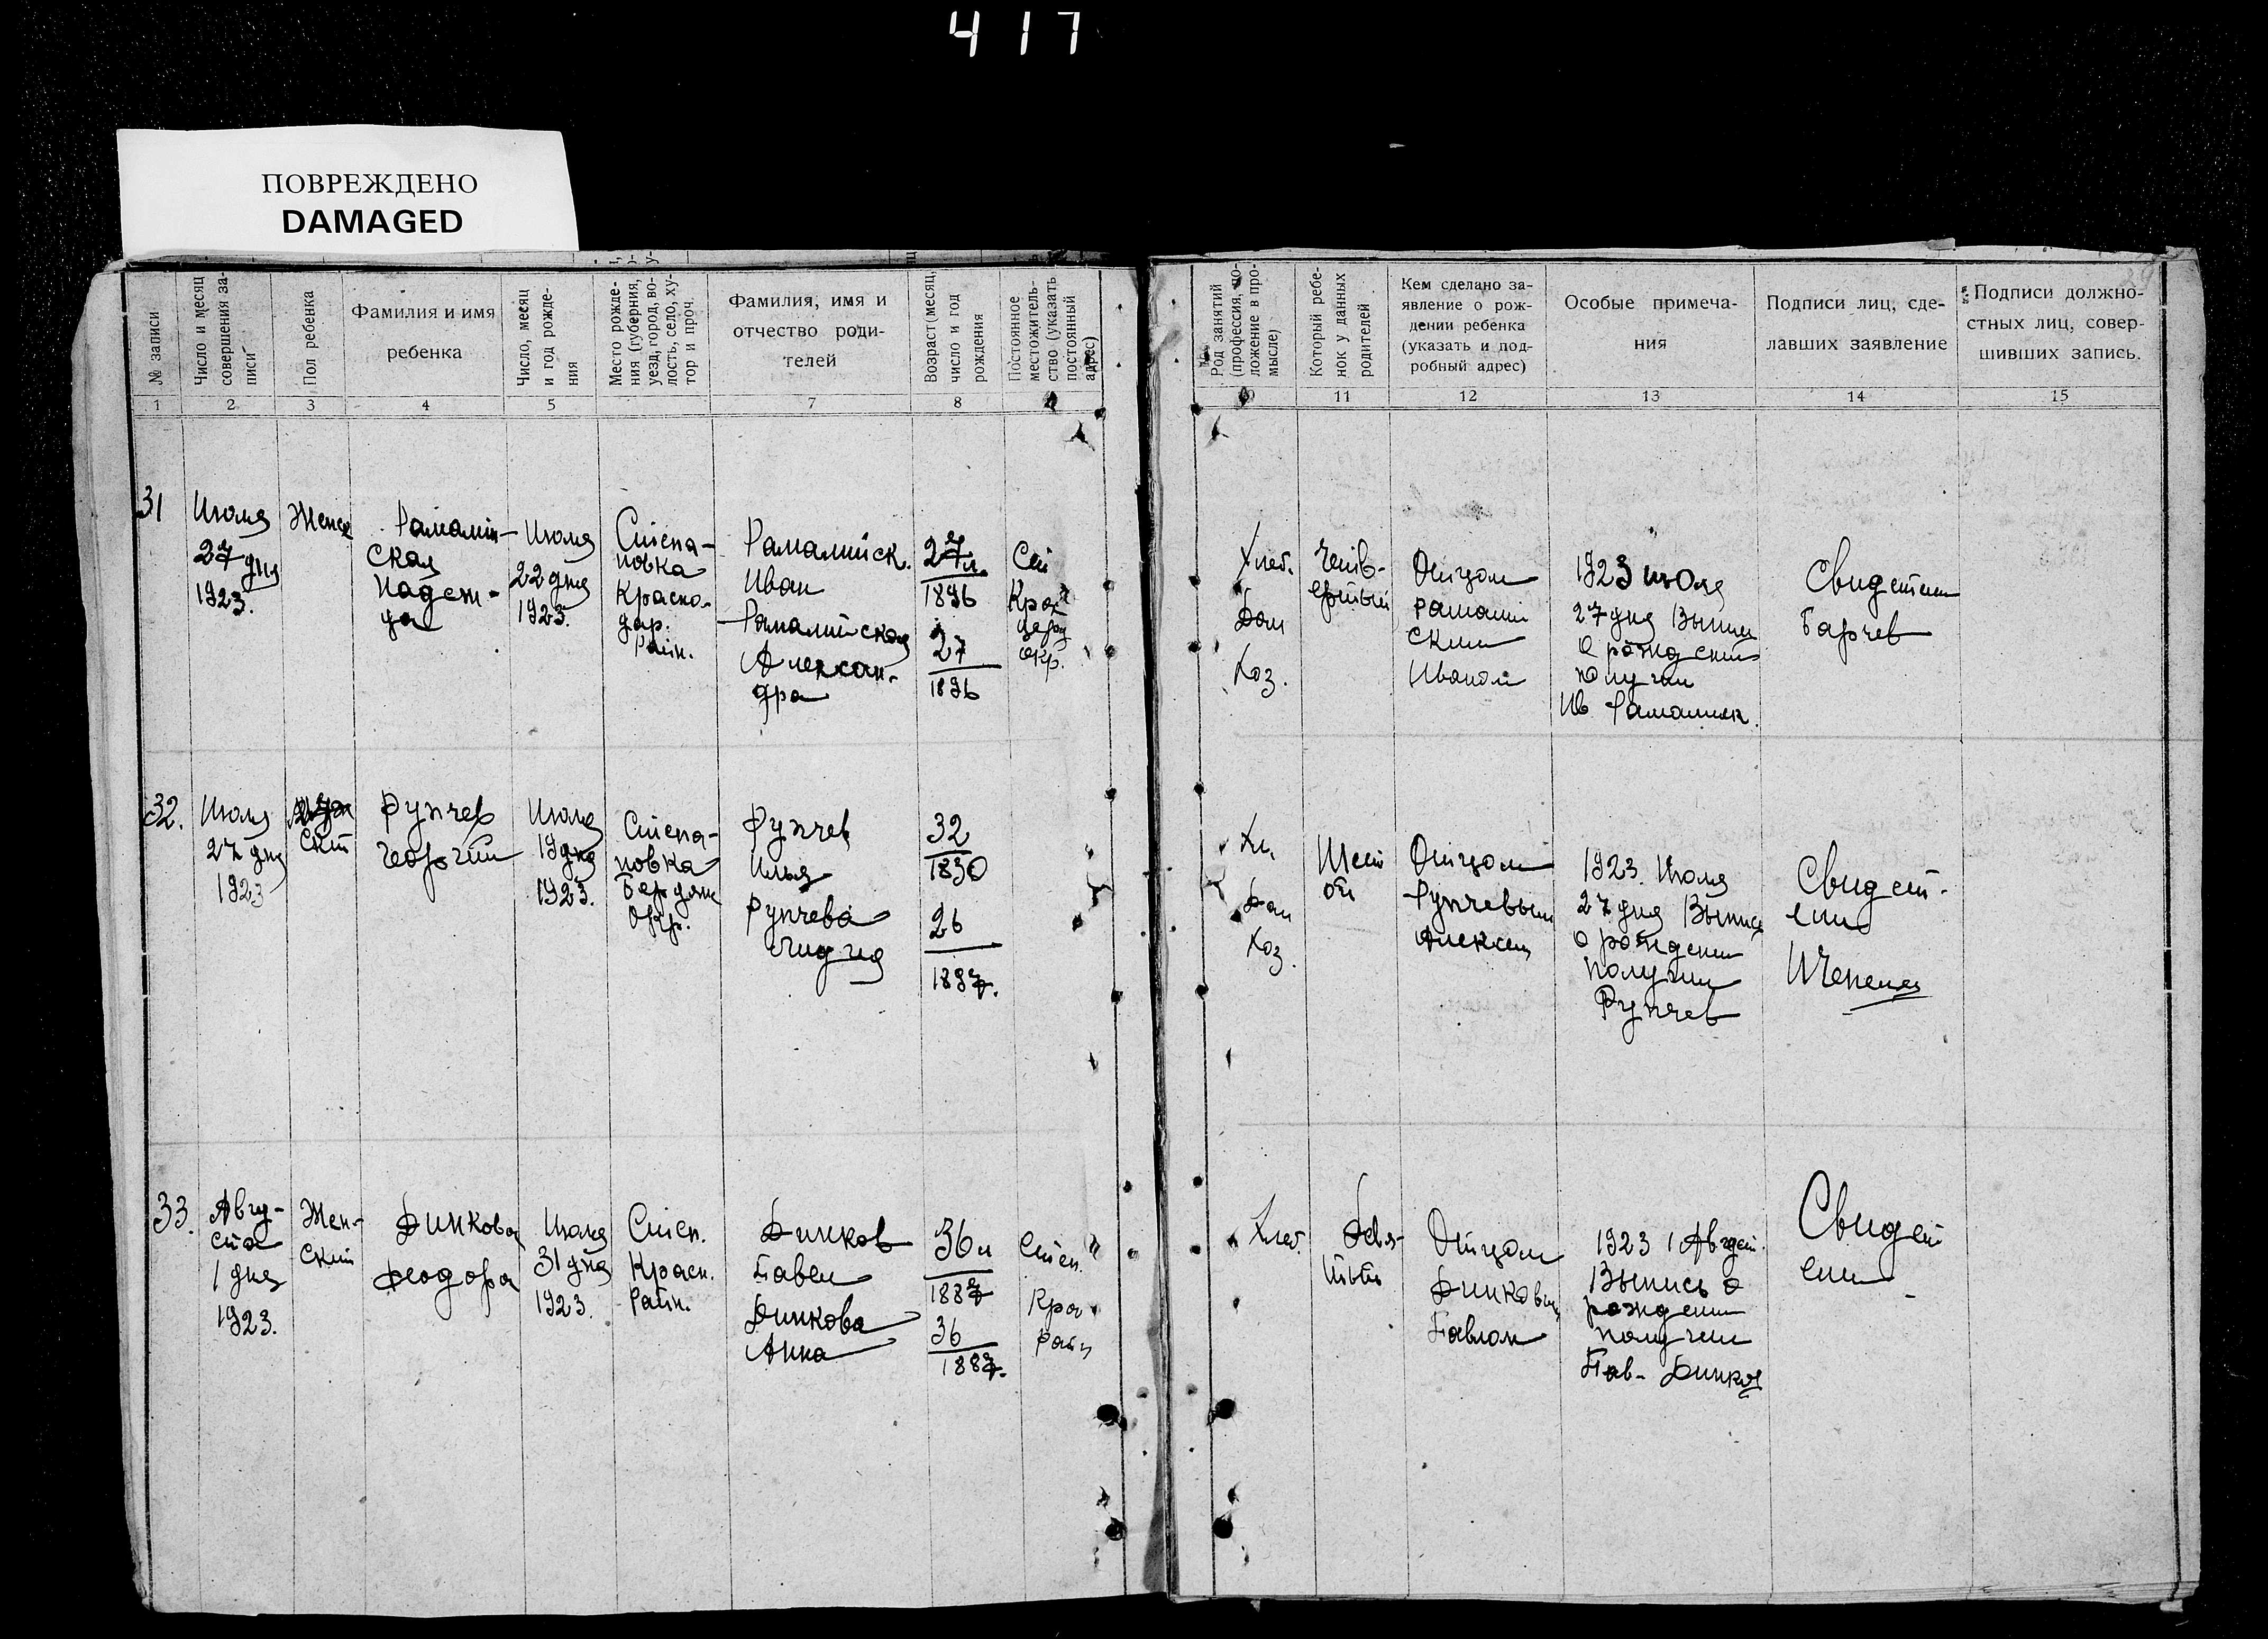 417
ПОВРЕЖДЕНО
DAMAGED
№ записи
Число и месяц
совершения за-
писи
Пол ребенка
Фамилия и имя
ребенка
Число, месяц
и год рожде-
ния
Место рожде-
ния (губерния,
уезд, город, во-
лость, село, ху-
тор и проч.
Фамилия, имя и
отчество роди-
телей
Возраст (месяц,
число и год
рождения
Постоянное
местожитель-
ство (указать
постоянный
адрес)
Род занятий
(профессия, по-
ложение в про-
мысле)
Который ребе-
нок у данных
родителей
Кем сделано за-
явление о рож-
дении ребенка
(указать и под-
робный адрес)
Особые примеча-
ния
Подписи лиц, сде-
лавших заявление
Подписи должно-
стных лиц, совер-
шивших запись.
1
2
3
4
5
7
8
11
12
13
14
15
31
Июля
27 дня
1923.
Женск
Рамалий-
ская
Надеж-
да
Июля
22 дня
1923.
Степа-
новка
Красно-
дар.
Райн.
Рамалийск.
Иван
Рамалийская
Алексан-
дра
27 л.
1896
27
1896
окр.
Хлеб.
Дом
Хоз.
Четв-
ертый
Отцом
Рамалий
ским
Иваном
1923 июля
27 дня Выпись
о рождении
получил
Ив. Рамалийск.
Свидетели
Барчев
32.
Июля
27 дня
1923
ский
Рупчев
Георгий
Июля
19 дня
1923.
Степа-
новка
Бердянс
Окр.
Рупчев
Илья
Рупчева
Лидия
32
1890
26
1897.
Хл.
Дом
Хоз.
Шест
ой
Отцом
Рупчевым
Алексей
1923. Июля
27 дня Выпись
о рождении
получил
Рупчев
Свидет-
ели
33.
Авгу-
ста
1 дня
1923.
Жен-
ский
Динкова
Феодора
Июля
31 дня
1923.
Степ.
Красн.
Райн.
Динков
Павел
Динкова
Анна
36 л
1887
36
1887.
Степ.
Кра
Райн
Хлеб.
Девя-
тый
Отцом
Динковым
Павлом
1923 1 Август.
Выпись о
рождении
получил
Пав. Динков
Свидет
ели